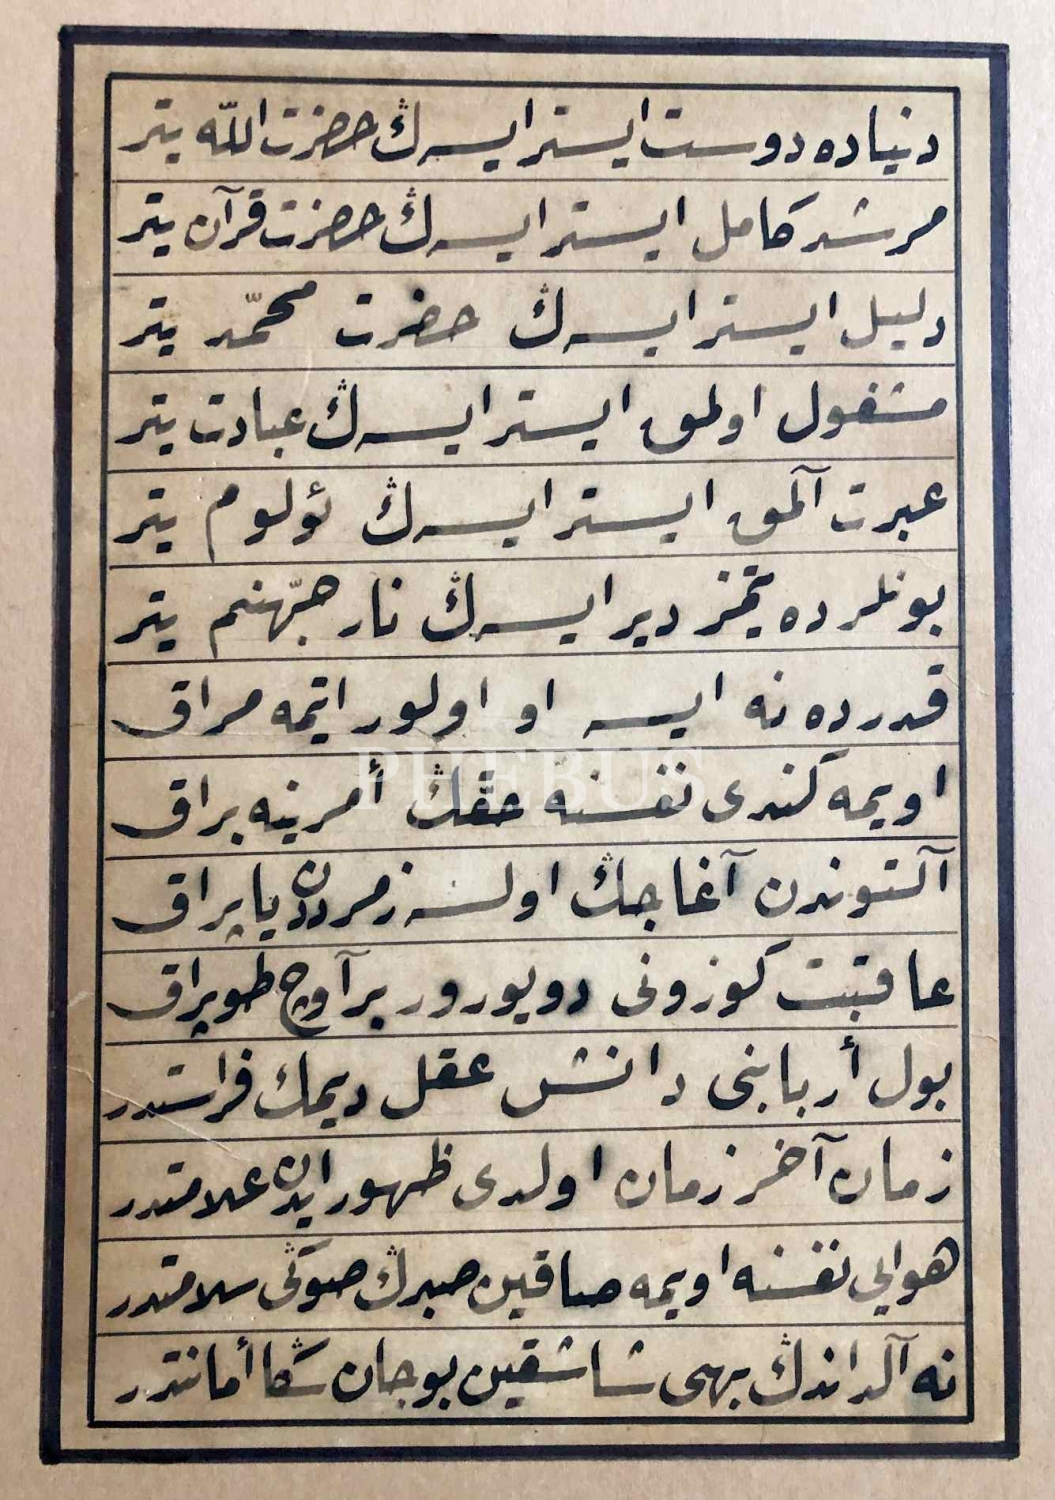 دنياده دوست ايستر ايسه‌ڭ حضرت اللّه يتر
مرشد كامل ايستر ايسه‌ڭ حضرت قرآن يتر
دليل ايستر ايسه‌ڭ حضرت محمّد يتر
مشغول اولمق ايستر ايسه‌ڭ عبادت يتر
عبرت آلمق ايستر ايسه‌ڭ ئولوم يتر
بونلرده يتمز دير ايسه‌ڭ نار جهّنم يتر
قدرده نه ايسه او اولور ايتمه مراق
اويمه كندى نفسنه حقڭ أمرينه براق
آلتوندن آغاجڭ اولسه زمردن ياپراق
عاقبت كوزونى دويورور بر آووچ طوپراق
بول أربابنى دانش عقل ديمك فراستدر
زمان آخر زمان اولدى ظهور ايدن علامتدر
هوايى نفسنه اويمه صاقين صبرڭ صوڭى سلامتدر
نه آلداندڭ بهى شاشقين بو جان سڭا أمانتدر
PHEBUS